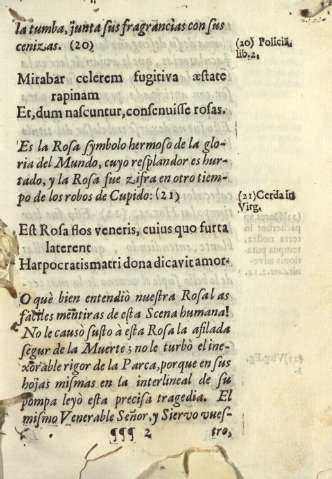 la tumba, junta sus fragrancias con sus
cenizas. (20)
(20) Policiã.
lib. 2.
Mirabar celerem fugitiva æstate
rapinam
Et, dum nascuntur, consenuisse rosas.
Es la Rosa symbolo hermoso de la glo-
ria del Mundo, cuyo resplandor es hur-
tado, y la Rosa fue zifra en otro tiem-
po de los robos de Cupido: (21)
(21) Cerda in
Virg.
Est Rosa flos veneris, cuius quo furta
laterent
Harpocratis matri dona dicavit amor.
O què bien entendiò nuestra Rosal as
faciles mentiras de esta Scena humana!
No le causò susto à esta Rosa la afilada
segur de la Muerte; no le turbò el ine-
xorable rigor de la Parca, porque en sus
hojas mismas en la interlineal de su
pompa leyò esta precisa tragedia. El
mismo Venerable Señor, y Siervo vues-
¶¶¶ 2
tro,